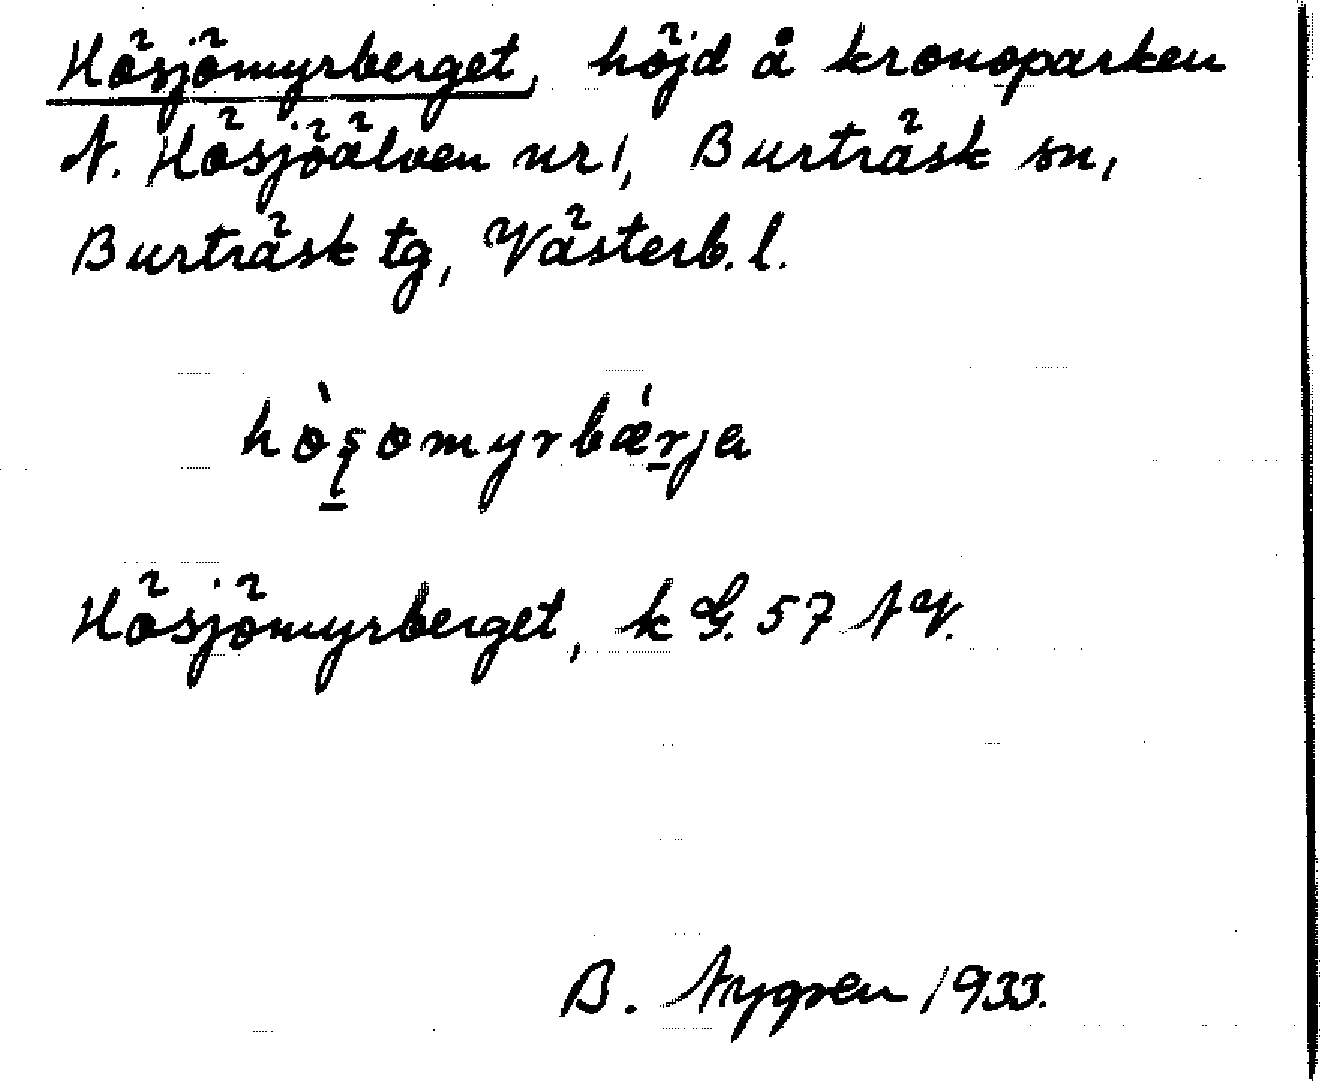 Hösjömyrberget, höjd å kronoparken
N. Hösjöälven nr 1, Burträsk sn,
Burträsk tg, Västerb. l.
hò̱ʂomyrbǽṟja
Hösjömyrberget, k G. 57 NV.
B. Nygren 1933.